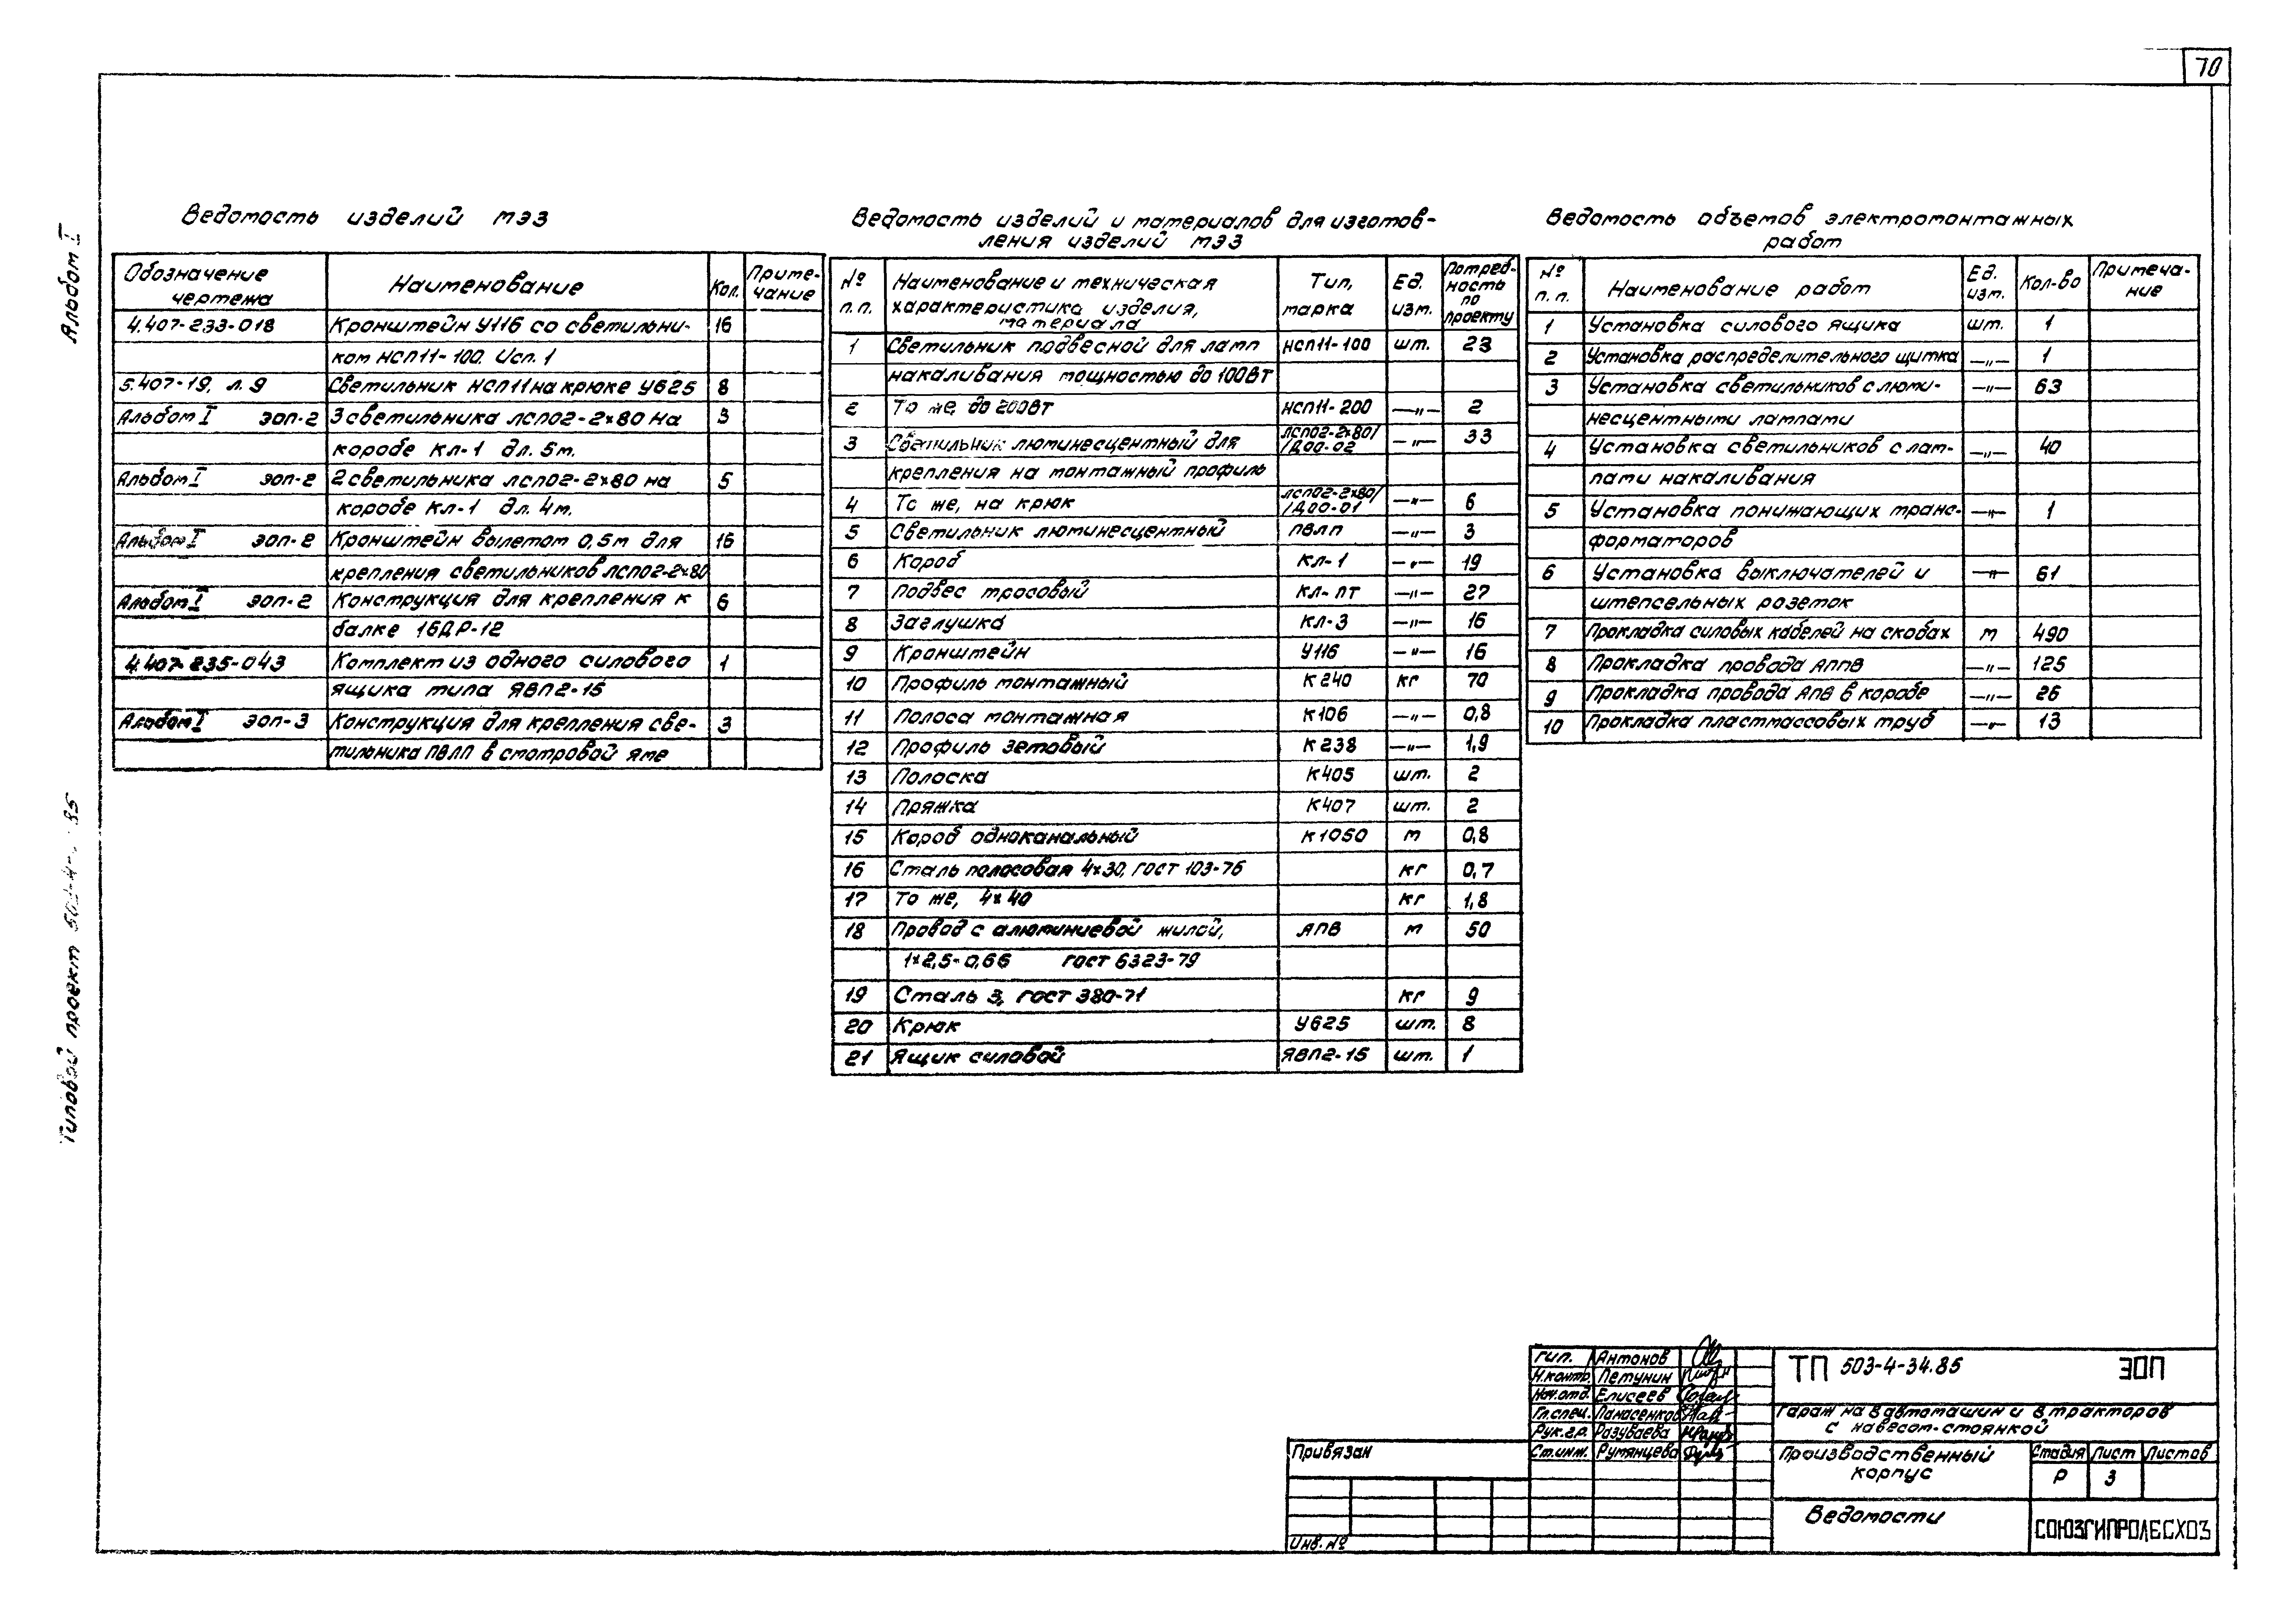 70
Альбом I
Типовой проект 503-4- . 85
Ведомость изделий МЭЗ
Обозначение чертежа | Наименование | Кол. | Примечание
4.407-233-018 | Кронштейн У116 со светильни- | 16
ком НСП11-100. Исп. 1
5.407-19, л. 9 | Светильник НСП11 на крюке У625 | 8
Альбом I ЭОП-2 | 3 светильника ЛСП02-2х80 на | 3
коробе КЛ-1 дл. 5м.
Альбом I ЭОП-2 | 2 светильника ЛСП02-2х80 на | 5
коробе КЛ-1 дл. 4м.
Альбом I ЭОП-2 | Кронштейн вылетом 0,5м для | 16
крепления светильников ЛСП02-2х80
Альбом I ЭОП-2 | Конструкция для крепления к | 6
балке 1БДР-12
4.407-235-043 | Комплект из одного силового | 1
ящика типа ЯВП2-15
Альбом I ЭОП-3 | Конструкция для крепления све- | 3
тильника ПВЛП в смотровой яме
Ведомость изделий и материалов для изготов-
ления изделий МЭЗ
№ п.п. | Наименование и техническая характеристика изделия, материала | Тип, марка | Ед. изм. | Потреб-ность по проекту
1 | Светильник подвесной для ламп | НСП11-100 | шт. | 23
накаливания мощностью до 100Вт
2 | То же, до 200Вт | НСП11-200 | —"— | 2
3 | Светильник люминесцентный для | ЛСП02-2х80/ /Д00-02 | —"— | 33
крепления на монтажный профиль
4 | То же, на крюк | ЛСП02-2х80/ /Д00-01 | —"— | 6
5 | Светильник люминесцентный | ПВЛП | —"— | 3
6 | Короб | КЛ-1 | —"— | 19
7 | Подвес тросовый | КЛ-ПТ | —"— | 27
8 | Заглушка | КЛ-3 | —"— | 16
9 | Кронштейн | У116 | —"— | 16
10 | Профиль монтажный | К240 | кг | 70
11 | Полоса монтажная | К106 | —"— | 0,8
12 | Профиль зетовый | К238 | —"— | 1,9
13 | Полоска | К405 | шт. | 2
14 | Пряжка | К407 | шт. | 2
15 | Короб одноканальный | К1050 | м | 0,8
16 | Сталь полосовая 4х30, ГОСТ 103-76 | кг | 0,7
17 | То же, 4х40 | кг | 1,8
18 | Провод с алюминиевой жилой, | АПВ | м | 50
1х2,5-0,66 ГОСТ 6323-79
19 | Сталь 3, ГОСТ 380-71 | кг | 9
20 | Крюк | У625 | шт. | 8
21 | Ящик силовой | ЯВП2-15 | шт. | 1
Ведомость объемов электромонтажных
работ
№ п.п. | Наименование работ | Ед. изм. | Кол-во | Примеча-ние
1 | Установка силового ящика | шт. | 1
2 | Установка распределительного щитка | —"— | 1
3 | Установка светильников с люми- | —"— | 63
несцентными лампами
4 | Установка светильников с лам- | —"— | 40
пами накаливания
5 | Установка понижающих транс- | —"— | 1
форматоров
6 | Установка выключателей и | —"— | 61
штепсельных розеток
7 | Прокладка силовых кабелей на скобах | м | 490
8 | Прокладка провода АППВ | —"— | 125
9 | Прокладка провода АПВ в коробе | —"— | 26
10 | Прокладка пластмассовых труб | —"— | 13
ГИП. Антонов
Н.контр. Петунин
Нач.отд. Елисеев
Гл.спец. Панасенков
Рук.гр. Разуваева
Ст.инж. Румянцева
ТП 503-4-34.85 ЭОП
Гараж на 8 автомашин и 8 тракторов
с навесом-стоянкой
Производственный
корпус
Стадия Лист Листов
Р 3
Ведомости
СОЮЗГИПРОЛЕСХОЗ
Привязан
Инв. №